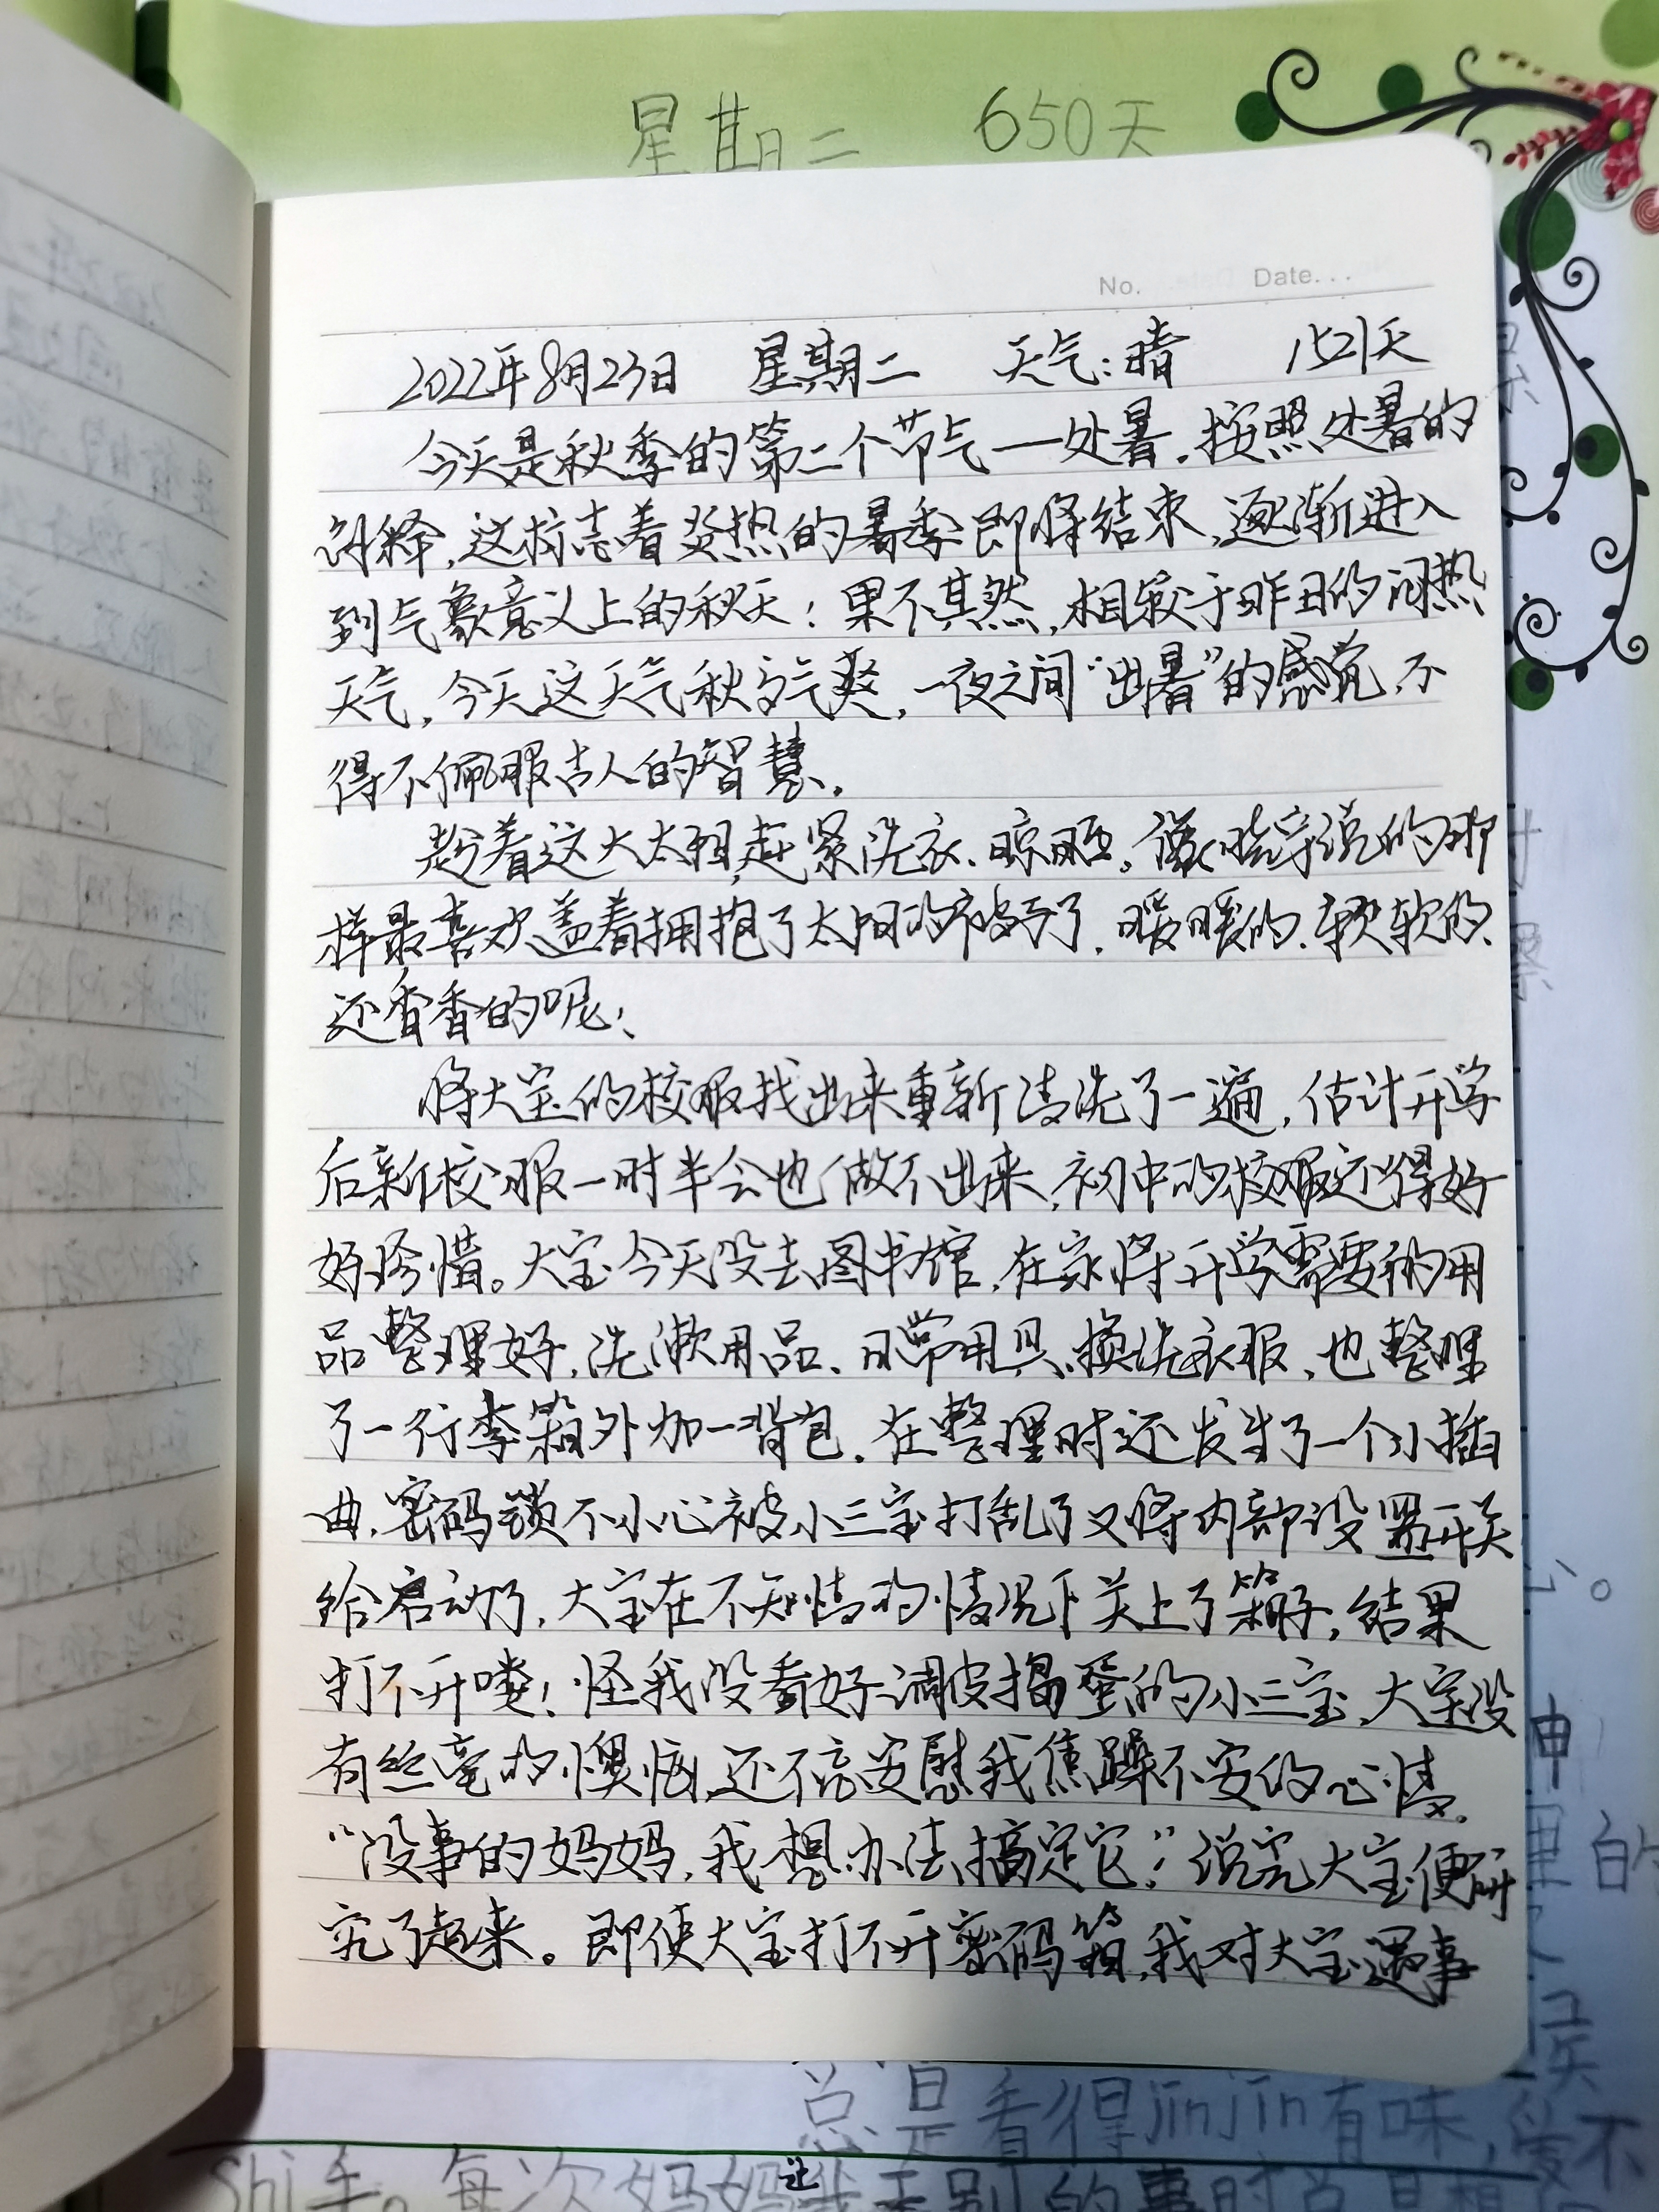 星期二 650天
No. Date...
2022年8月23日 星期二 天气:晴 1521天
今天是秋季的第二个节气一处暑,按照处暑的
解释,这标志着炎热的暑季即将结束,逐渐进入
到气象意义上的秋天!果不其然,相较于昨日的闷热
天气,今天这天气秋高气爽,一夜之间“出暑”的感觉,不
得不佩服古人的智慧。
趁着这大太阳,赶紧洗衣、晾晒。像晓宇说的那
样最喜欢盖着拥抱了太阳的被子了,暖暖的、软软的、
还香香的呢!
将大宝的校服找出来重新清洗了一遍,估计开学
后新校服一时半会也做不出来,初中的校服还得好
好珍惜。大宝今天没去图书馆,在家将开学需要的用
品整理好,洗漱用品、日常用具、换洗衣服,也整理
了一行李箱外加一背包。在整理时还发生了一个小插
曲,密码锁不小心被小三宝打乱了又将内部设置开关
给启动了,大宝在不知情的情况下关上了箱子,结果
打不开喽!怪我没看好调皮捣蛋的小三宝,大宝没
有丝毫的懊恼,还不忘安慰我焦躁不安的心情。
“没事的妈妈,我想办法搞定它!”说完大宝便研
究了起来。即使大宝打不开密码箱,我对大宝遇事
总是看得jinjin有味,爱不
shi手。每次妈妈